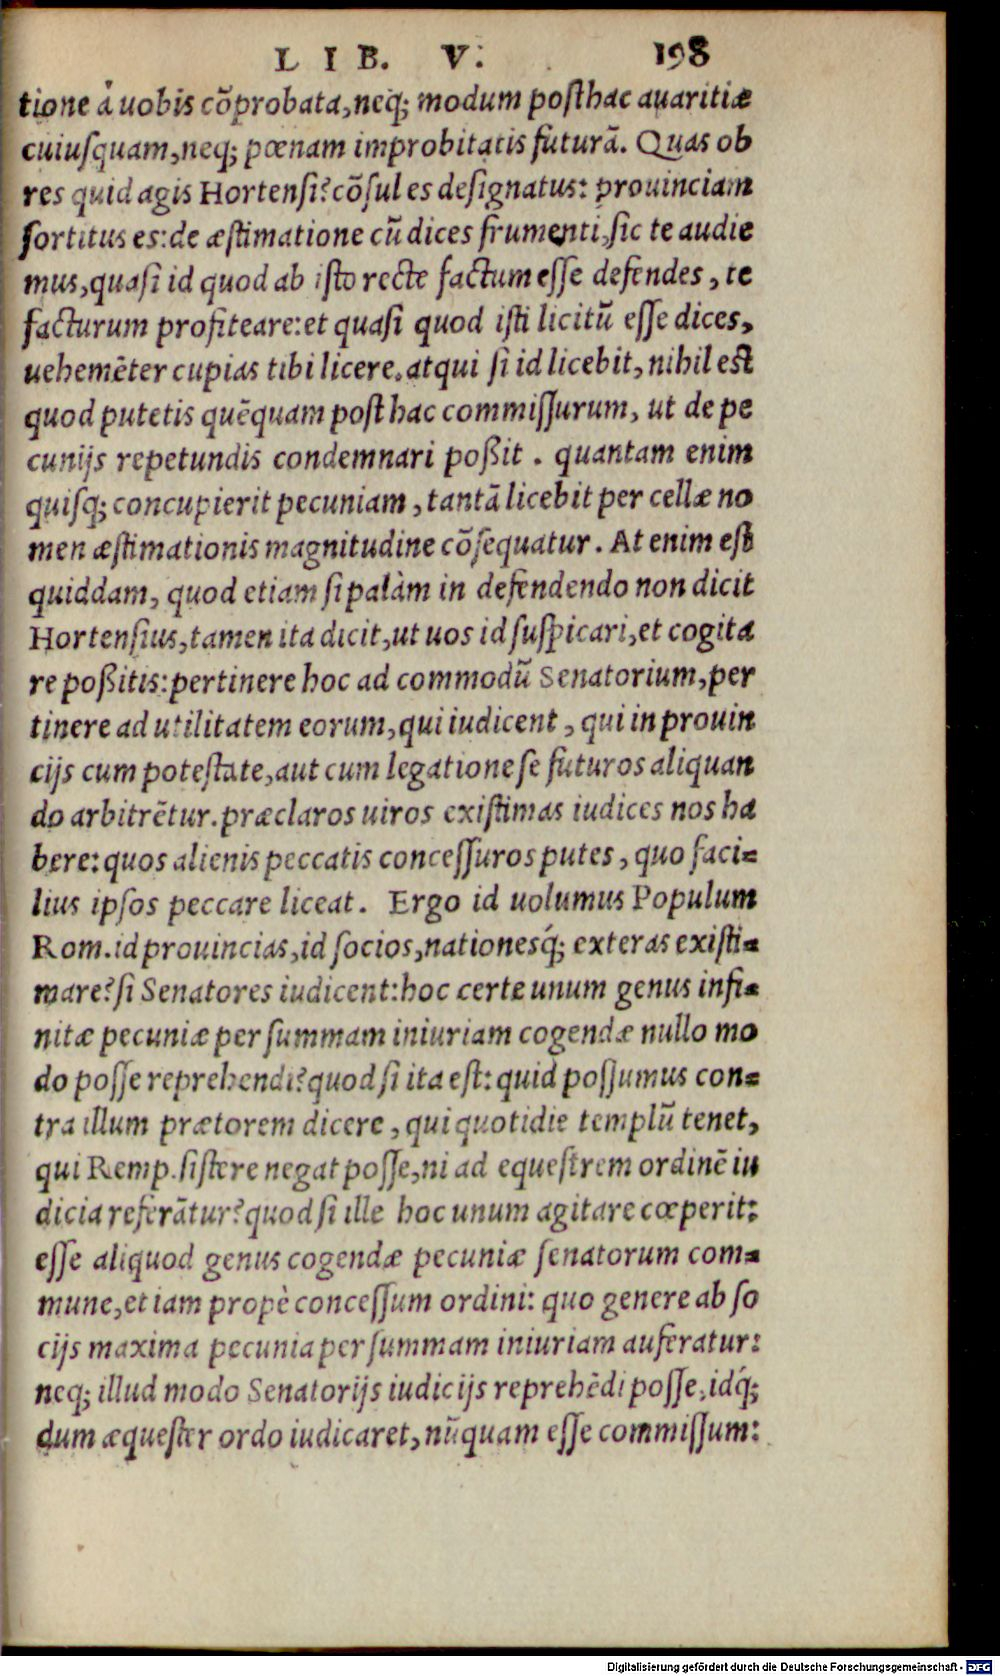 LIB. V. 198
tione à uobis cōprobata, neq; modum posthac auaritiæ
cuiusquam, neq; pœnam improbitatis futurā. Quas ob
res quid agis Hortensi? cōsul es designatus: prouinciam
sortitus es: de æstimatione cū dices frumenti, sic te audie
mus, quasi id quod ab isto recte factum esse defendes, te
facturum profiteare: et quasi quod isti licitū esse dices,
uehemēter cupias tibi licere. atqui si id licebit, nihil est
quod putetis quēquam post hac commissurum, ut de pe
cunijs repetundis condemnari poßit. quantam enim
quisq; concupierit pecuniam, tantā licebit per cellæ no
men æstimationis magnitudine cōsequatur. At enim est
quiddam, quod etiam si palàm in defendendo non dicit
Hortensius, tamen ita dicit, ut uos id suspicari, et cogita
re poßitis: pertinere hoc ad commodū Senatorium, per
tinere ad utilitatem eorum, qui iudicent, qui in prouin
cijs cum potestate, aut cum legatione se futuros aliquan
do arbitrētur. præclaros uiros existimas iudices nos ha
bere: quos alienis peccatis concessuros putes, quo faci=
lius ipsos peccare liceat. Ergo id uolumus Populum
Rom. id prouincias, id socios, nationesq́; exteras existi=
mare? si Senatores iudicent: hoc certe unum genus infi=
nitæ pecuniæ per summam iniuriam cogendæ nullo mo
do posse reprehendi? quod si ita est: quid possumus con=
tra illum prætorem dicere, qui quotidie templū tenet,
qui Remp. sistere negat posse, ni ad equestrem ordinē iu
dicia referātur? quod si ille hoc unum agitare cœperit:
esse aliquod genus cogendæ pecuniæ senatorum com=
mune, et iam propè concessum ordini: quo genere ab so
cijs maxima pecunia per summam iniuriam auferatur:
neq; illud modo Senatorijs iudicijs reprehēdi posse, idq́;
dum æquester ordo iudicaret, nūquam esse commissum:
Digitalisierung gefördert durch die Deutsche Forschungsgemeinschaft - DFG